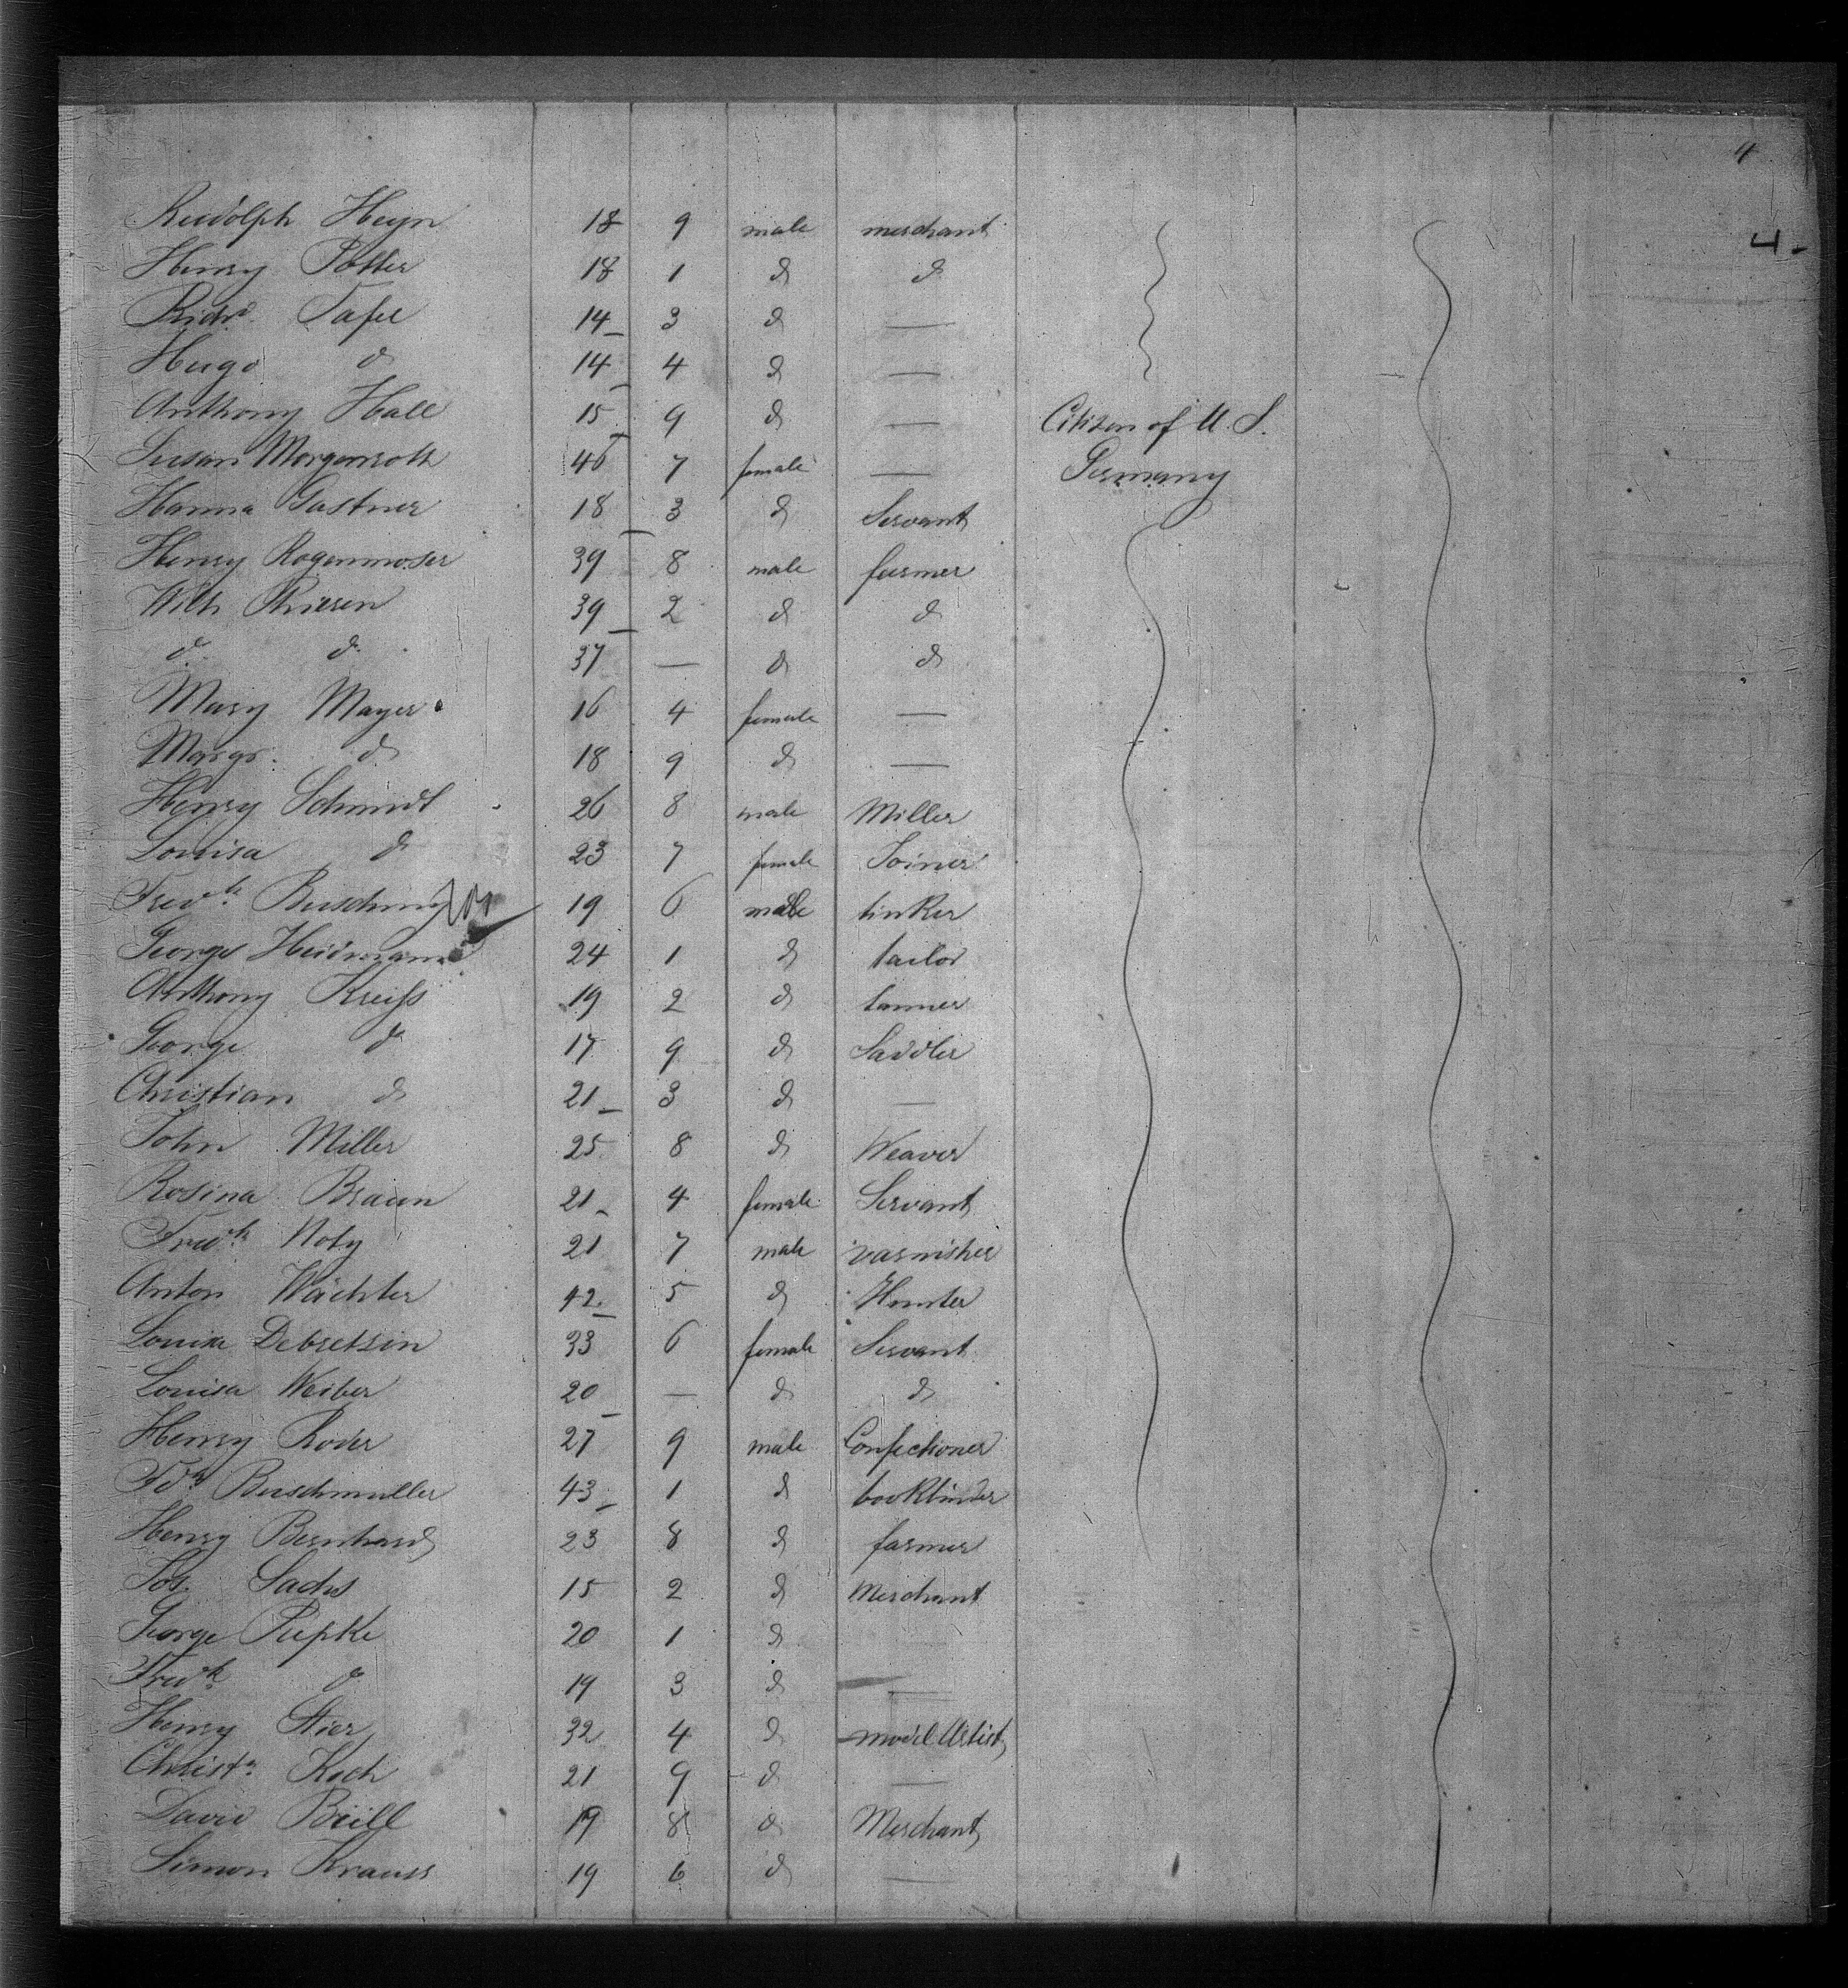 4
4-
Rudolph Heyn 18 9 male merchant
Henry Potter 18 1 do do
Richd. Tafel 14 3 do —
Hugo do 14 4 do —
Anthony Hall 15 9 do — Citizen of U. S.
Susan Morgenroth 46 7 female — Germany
Hanna Gastner 18 3 do Servant
Henry Rogenmoser 39 8 male farmer
Wilh Thiesen 39 2 do do
do do 37 — do do
Mary Mayer 16 4 female —
Margr. do 18 9 do —
Henry Schmidt 26 8 male Miller
Louisa do 23 7 female Joiner
Fredk. 19 6 male tinker
George Heidmann 24 1 do tailor
Anthony Kreiss 19 2 do tanner
George do 17 9 do Saddler
Christian do 21 3 do —
John Miller 25 8 do Weaver
Rosina Braun 21 4 female Servant
Fredk. 21 7 male varnisher
Anton Wächter 42 5 do Hunter
Louise Debretsin 33 6 female Servant
Louisa Weiber 20 — do do
Henry Roder 27 9 male Confectioner
Fdk. Buschmuller 43 1 do bookbinder
Henry Bernhard 23 8 do farmer
Jos. Sachs 15 2 do Merchant
George Piepke 20 1 do
Fredk. do 19 3 do —
Henry Stier 32 4 do model Artist
Christn. Koch 21 9 do —
David Brill 19 8 do Merchant
Simon Krauss 19 6 do —